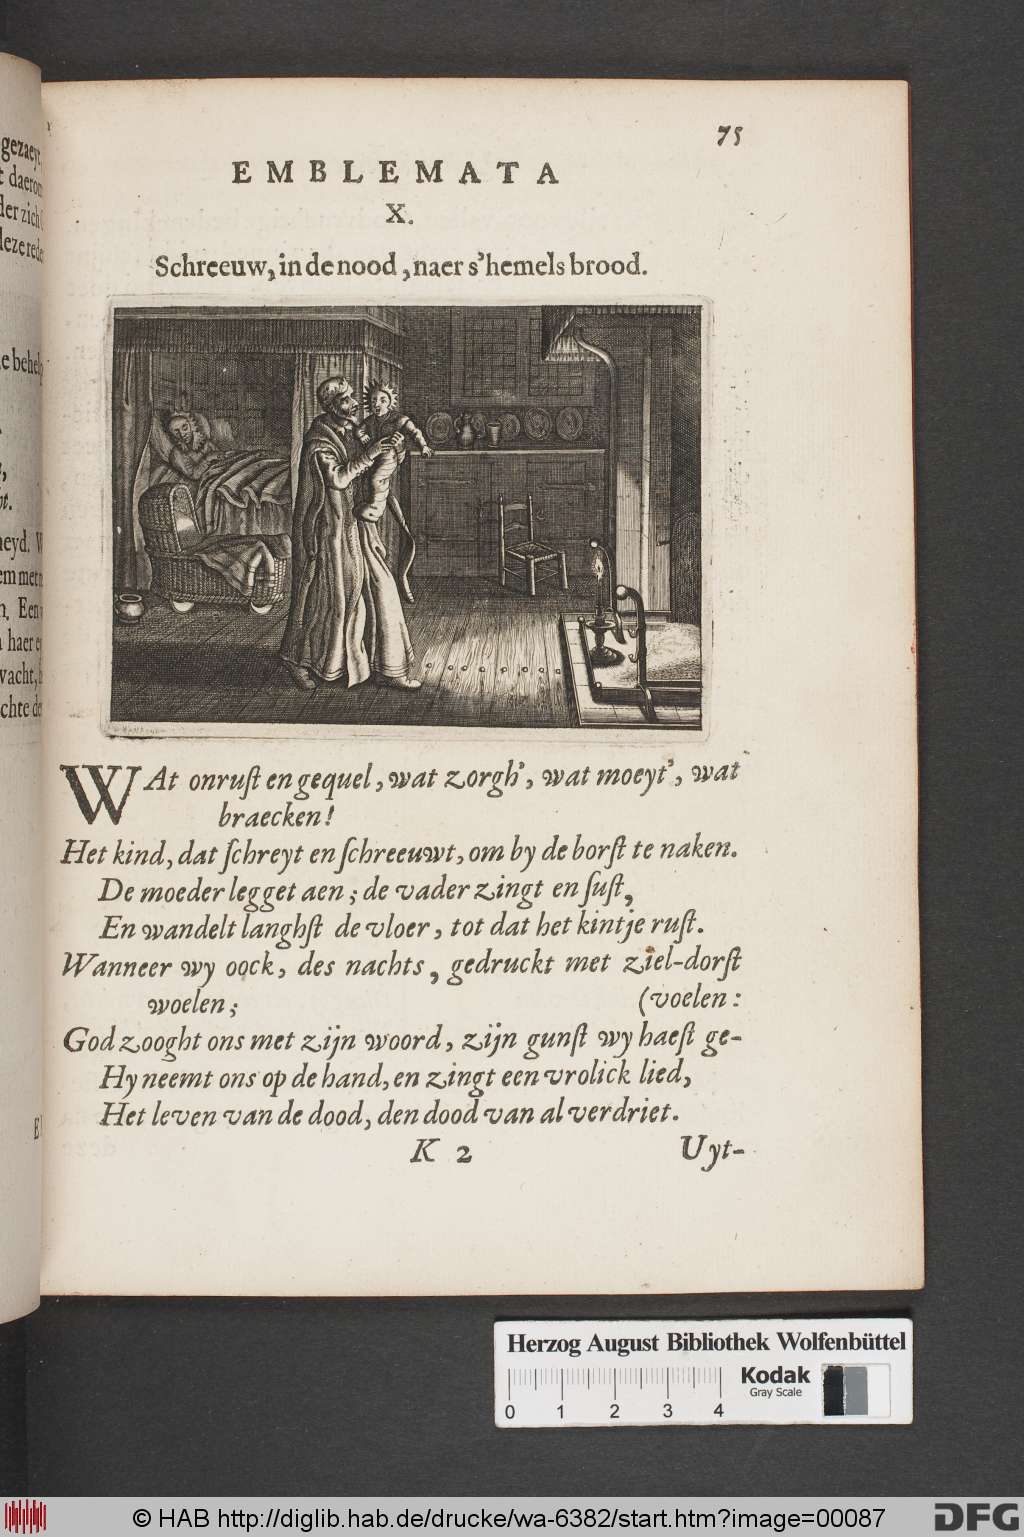 75
EMBLEMATA
X.
Schreeuw, in de nood, naer s'hemels brood.
WAt onruſt en gequel, wat zorgh', wat moeyt', wat
braecken!
Het kind, dat ſchreyt en ſchreeuwt, om by de borſt te naken.
De moeder legget aen; de vader zingt en ſuſt,
En wandelt langhſt de vloer, tot dat het kintje ruſt.
Wanneer wy oock, des nachts, gedruckt met ziel-dorſt
woelen; (voelen:
God zooght ons met zijn woord, zijn gunſt wy haeſt ge-
Hy neemt ons op de hand, en zingt een vrolick lied,
Het leven van de dood, den dood van al verdriet.
K 2 Uyt-
gezaeyt,
daerom
der zich
deze rede
Herzog August Bibliothek Wolfenbüttel
Kodak
Gray Scale
0 1 2 3 4
© HAB http://diglib.hab.de/drucke/wa-6382/start.htm?image=00087
DFG